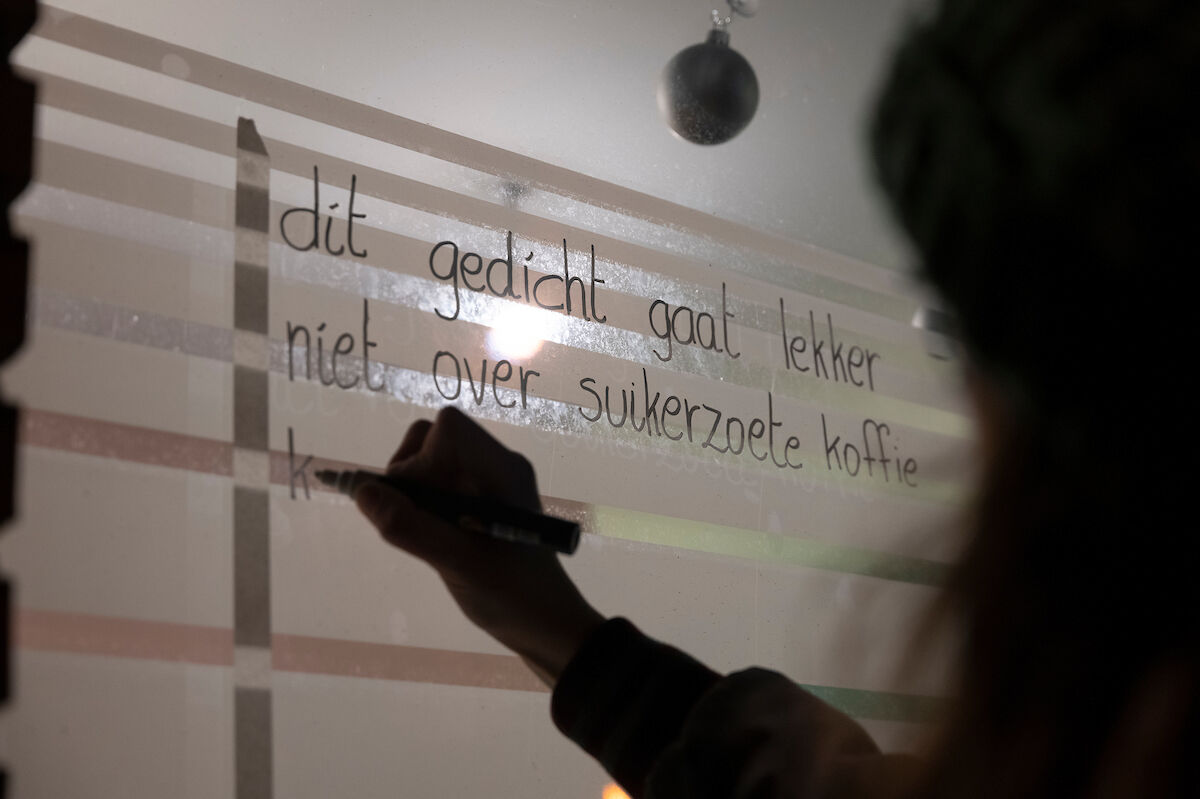 dit gedicht gaat lekker
niet over suikerzoete koffie
k